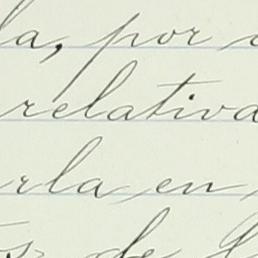 la, por
relativa
rla en
de